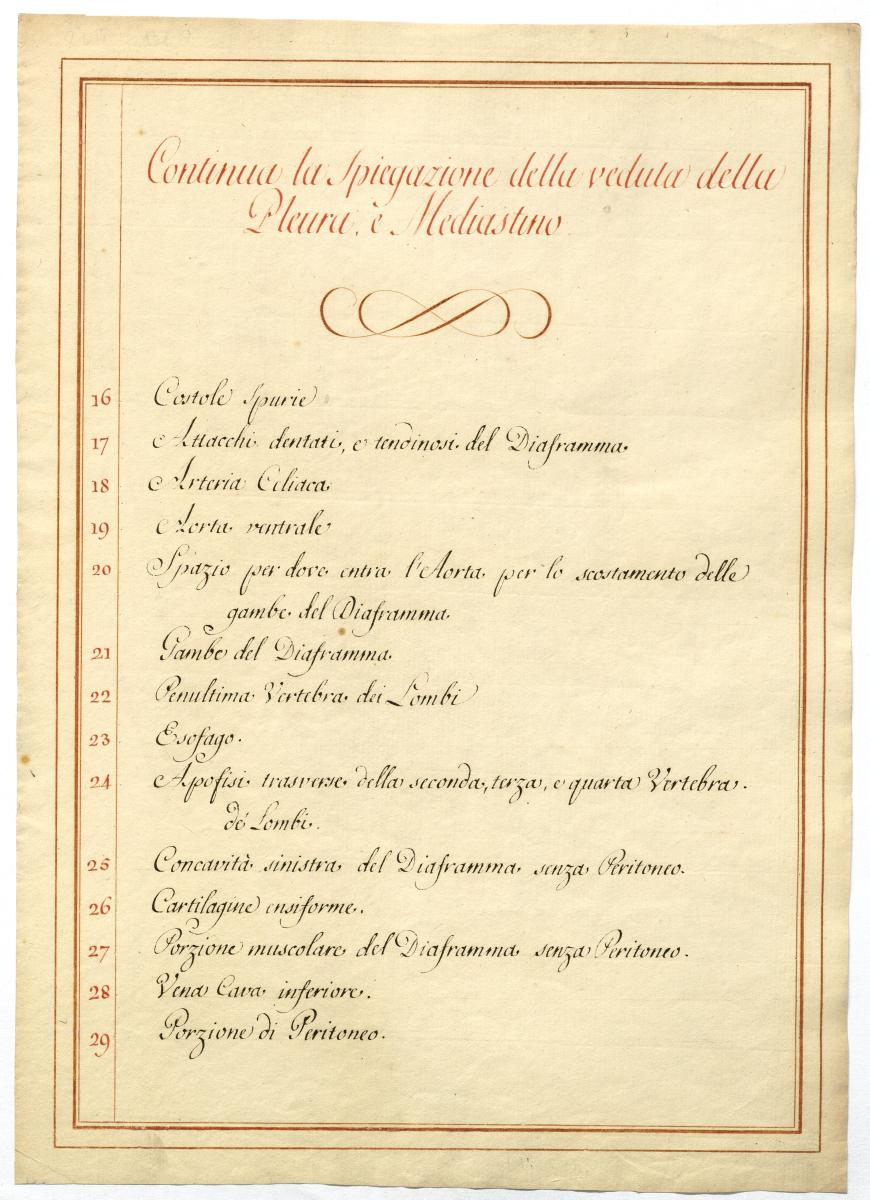 Continua la Spiegazione della veduta della
Pleura, è Mediastino
16 Costole Spurie
17 Attacchi dentati, e tendinosi del Diaframma.
18 Arteria Celiaca
19 Aorta ventrale
20 Spazio per dove entra l'Aorta per lo scostamento delle
gambe del Diaframma.
21 Gambe del Diaframma.
22 Penultima Vertebra dei Lombi
23 Esofago.
24 Apofisi trasverse della seconda, terza, e quarta Vertebra.
de' Lombi.
25 Concavità sinistra del Diaframma senza Peritoneo.
26 Cartilagine ensiforme.
27 Porzione muscolare del Diaframma senza Peritoneo.
28 Vena Cava inferiore.
29 Porzione di Peritoneo.